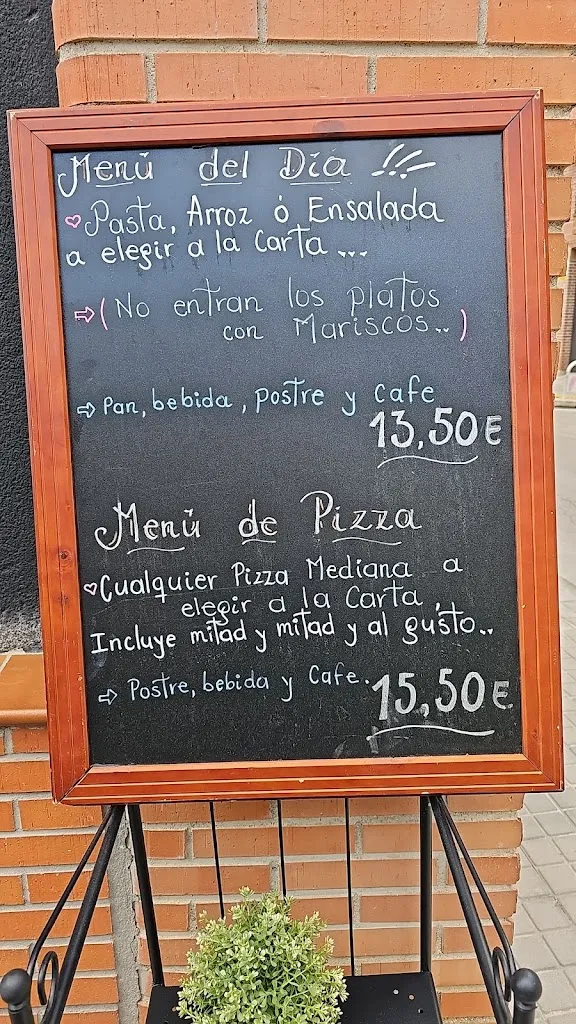 Menú del Día !!!
Pasta, Arroz ó Ensalada
a elegir a la Carta ...
⇨ (No entran los platos
con Mariscos..)
⇨ Pan, bebida, postre y cafe
13,50€
Menú de Pizza
Cualquier Pizza Mediana a
elegir a la Carta,
Incluye mitad y mitad y al gusto..
⇨ Postre, bebida y Cafe.
15,50€